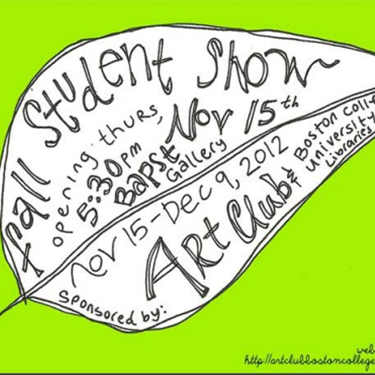 fall Student Show
opening thurs, Nov 15th
5:30pm
Bapst
Gallery
Nov 15-Dec 9, 2012
Sponsored by: Art Club &
Boston Colle
University
Libraries
web
http://artclubbostoncollege